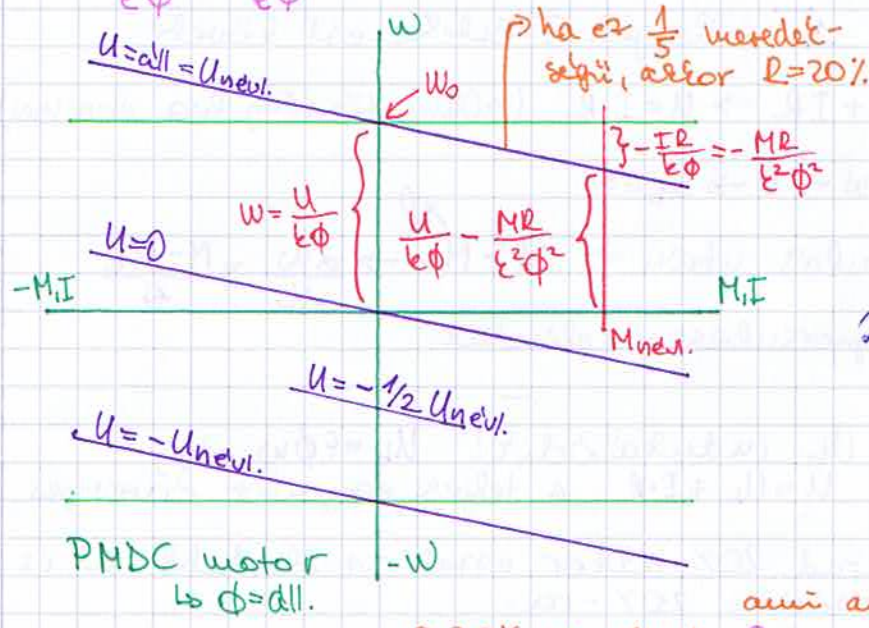 W
→ ha ez 1/5 meredek-
ségű, akkor R=20%
U=áll=Unévl.
W₀
} -IR/kϕ = -MR/k²ϕ²
W = U/kϕ
U/kϕ - MR/k²ϕ²
U=0
-M,I
M,I
Mnévl.
U = -1/2 Unévl.
U = -Unévl.
PMDC motor
↳ ϕ=áll.
-W
ami a